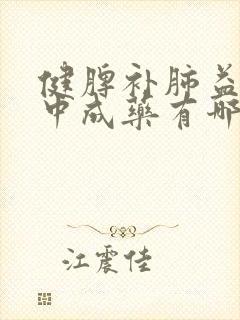 健脾补肺益
中成药有哪
江震佳